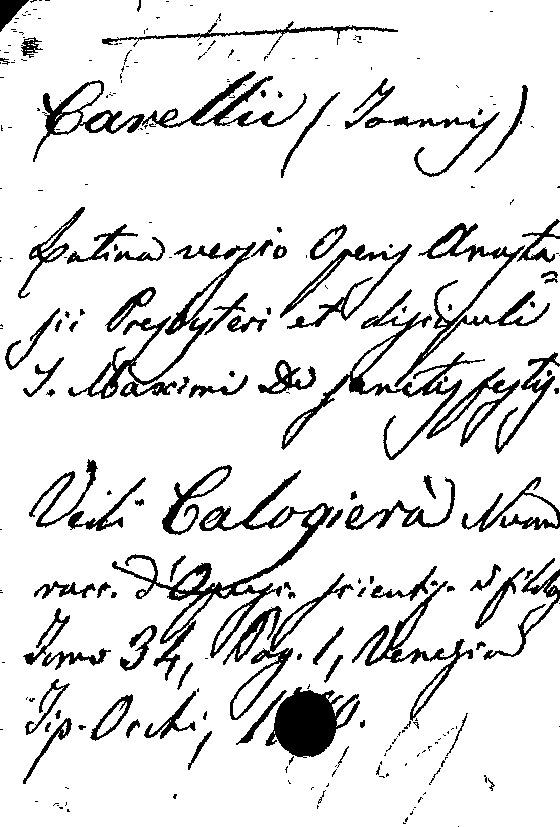 Carellii (Joannis)
Latina versio Operis Anasta=
sii Presbyteri et discipuli
S. Maximi De sanctis festis.
Vedi Calogierà Nuova
racc. d'Opusc. scientif. e filolog
Tomo 34, Pag. 1, Venezia
Tip. Occhi,